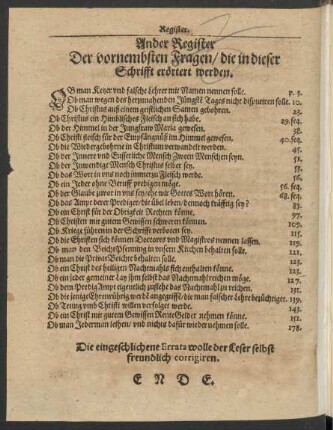 Register.
Ander Register
Der vornembsten Fragen/ die in dieser
Schrifft erörtert werden.
OB man Ketzer vnd falsche Lehrer mit Namen nennen solle. p. 5.
Ob man wegen des herzunahenden Jüngstē Tages nicht disputiren solle. 10.
Ob Christus auß einem geistlichen Samen geboren. 23.
Ob Christus ein Himlisches Fleisch an sich habe. 29. seq.
Ob der Himmel in der Jungfraw Maria gewesen. 38.
Ob Christi fleisch für der Empfängnüß im Himmel gewesen. 40. seq.
Ob die Wiedergebohrne in Christum verwandelt werden. 45.
Ob der Innere vnd Eusserliche Mensch Zween Menschen seyn. 51.
Ob der Inwendige Mensch Christus selber sey. 52.
Ob das Wort in vns noch immerzu Fleisch werde. 56.
Ob ein Jeder ohne Beruff predigen möge. 56. seq.
Ob der Glaube zuvor in vns sey/ehe wir Gottes Wort hören. 68. seq.
Ob das Ampt derer Prediger/die übel leben/dennoch kräfftig sey? 83.
Ob ein Christ für der Obrigkeit Rechten könne. 97.
Ob Christen mit gutem Gewissen schweren können. 109.
Ob Kriege führen in der Schrifft verboten sey. 115.
Ob die Christen sich können Doctores vnd Magistros nennen lassen. 119.
Ob man von Beicht Pfenning in vnsern Kirchen behalten solle. 121.
Ob man die Privat Beichte behalten solle. 123.
Ob ein Christ das heilige Nachtmahl sich enthalten könne. 125.
Ob ein jeder gemeiner Lay ihm selbst das Nachtmahl reichen möge. 127.
Ob dem Predig Ampt eigentlich zustehe das Nachtmahl zu reichen. 131.
Ob die jenige Ehrenrührig werdē angegriffē/die man falscher Lehre beschuldiget. 139.
Ob Trew vnd Christi willen verfolget werde. 143.
Ob ein Christ mit gutem Gewissen Rente Gelder nehmen könne. 151.
Ob man Jederman leihen/ vnd nichts dafür wieder nehmen solle. 178.
Die eingeschlichene Errata wolle der Leser selbst
freundlich corrigiren.
E N D E.